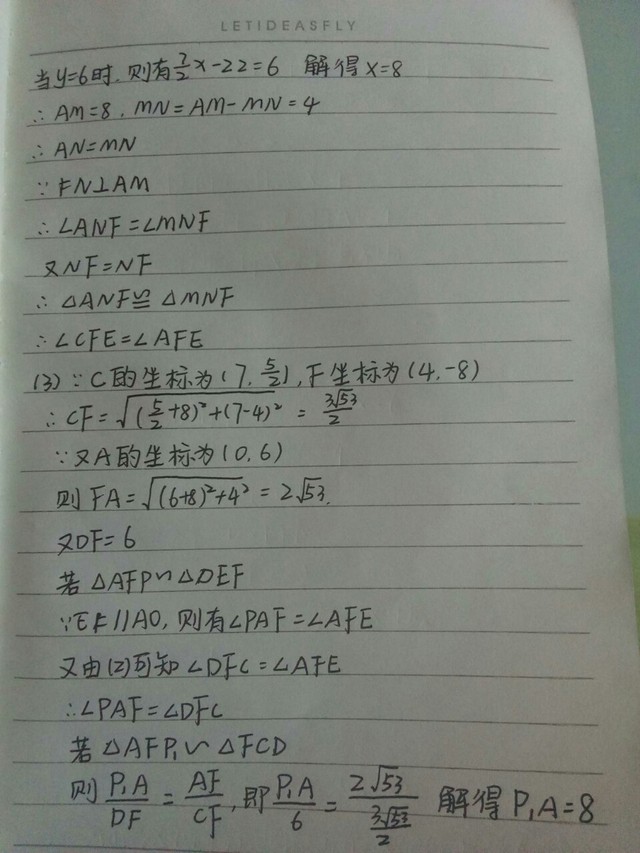 LETIDEASFLY
当y=6时,则有7/2x-22=6 解得x=8
∴AM=8,MN=AM-MN=4
∴AN=MN
∵FN⊥AM
∴∠ANF=∠MNF
又NF=NF
∴△ANF≌△MNF
∴∠CFE=∠AFE
(3)∵C的坐标为(7,5/2),F坐标为(4,-8)
∴CF=√((5/2+8)²+(7-4)²)=3√53/2
∵又A的坐标为(0,6)
则FA=√((6+8)²+4²)=2√53.
又DF=6
若△AFP∽△DEF
∵EF//AO,则有∠PAF=∠AFE
又由(2)可知∠DFC=∠AFE
∴∠PAF=∠DFC
若△AFP₁∽△FCD
则P₁A/DF=AF/CF,即P₁A/6=2√53/(3√53/2) 解得P₁A=8